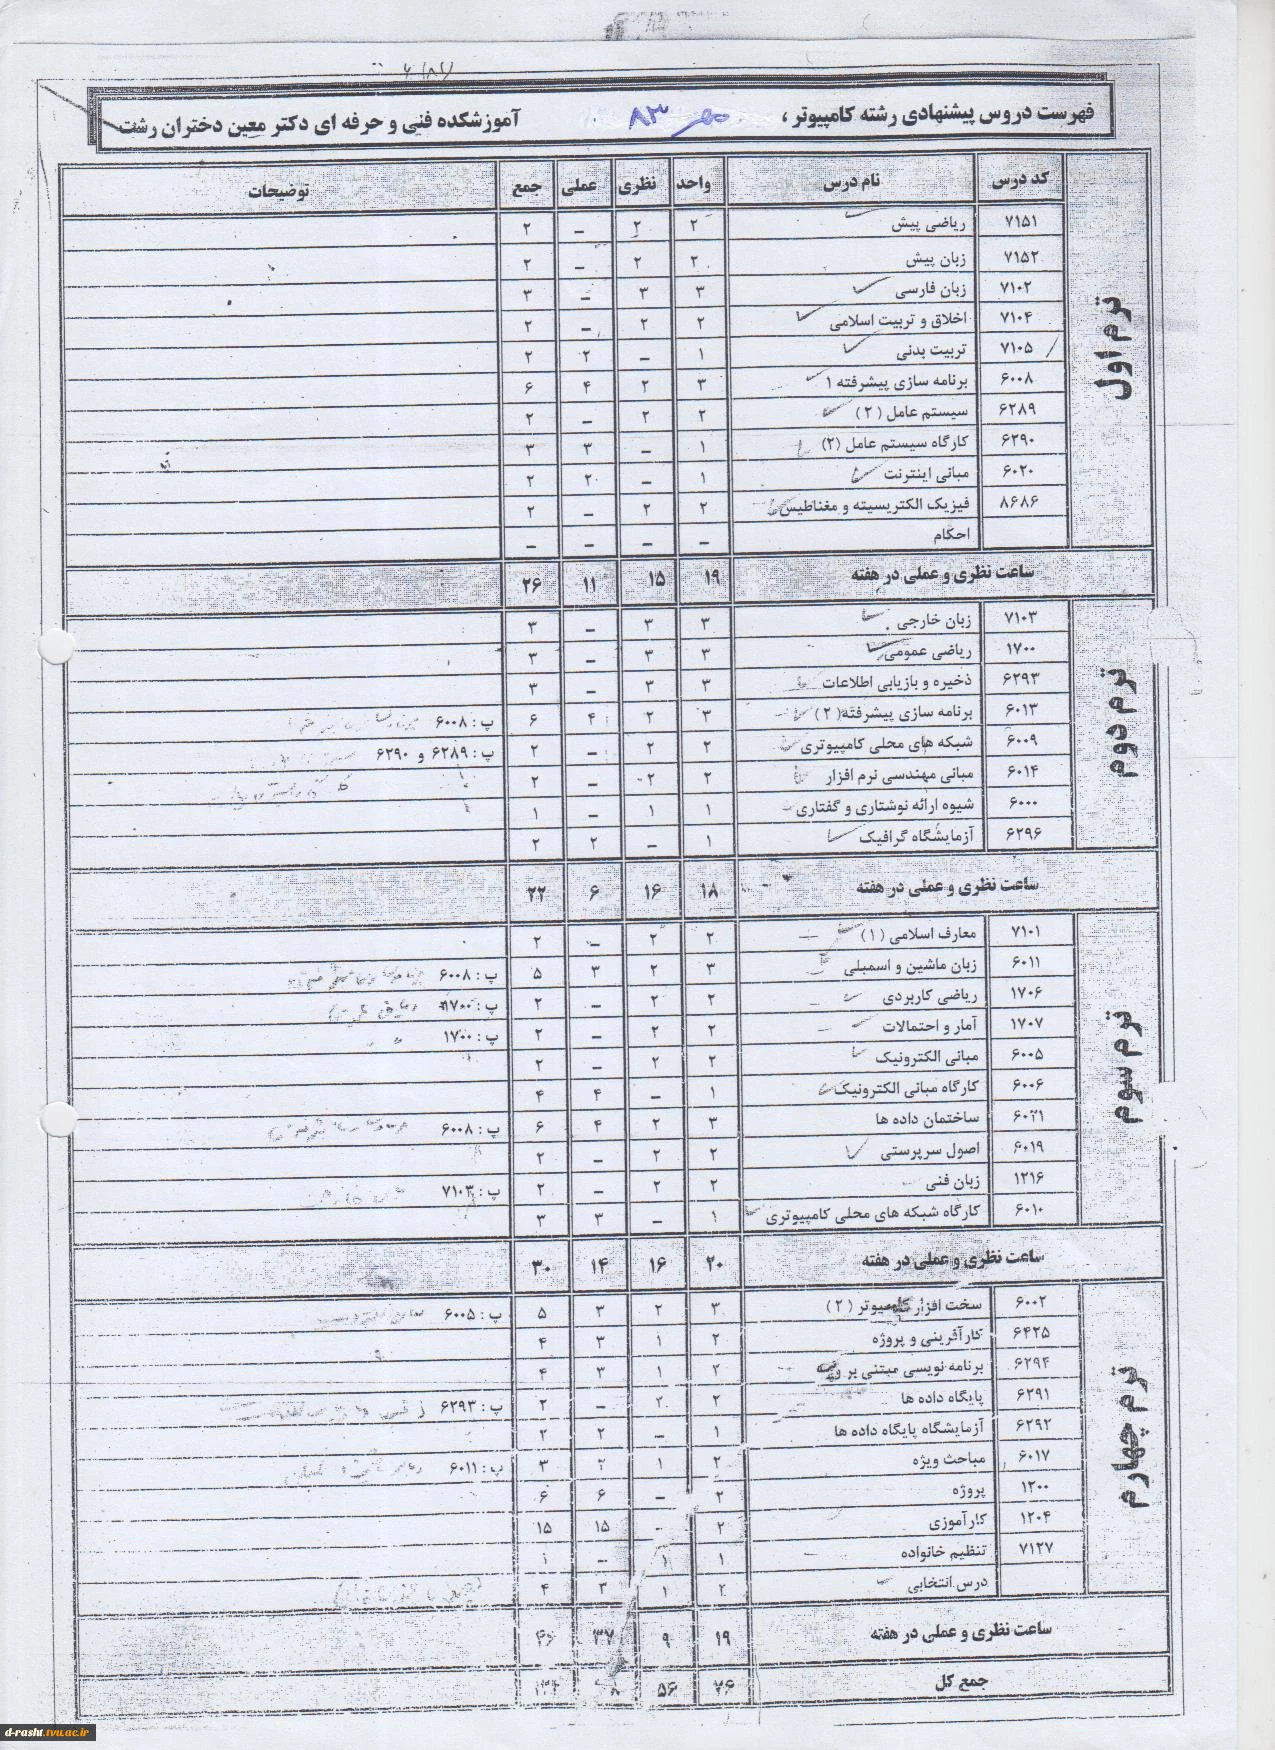 فهرست دروس پیشنهادی رشته کامپیوتر، مهر ۸۳ آموزشکده فنی و حرفه ای دکتر معین دختران رشت
کد درس نام درس واحد نظری عملی جمع توضیحات
ترم اول
۷۱۵۱ ریاضی پیش ۲ ۲ – ۲
۷۱۵۲ زبان پیش ۲ ۲ – ۲
۷۱۰۲ زبان فارسی ۳ ۳ – ۳
۷۱۰۴ اخلاق و تربیت اسلامی ۲ ۲ – ۲
۷۱۰۵ تربیت بدنی ۱ – ۲ ۲
۶۰۰۸ برنامه سازی پیشرفته ۱ ۳ ۲ ۴ ۶
۶۲۸۹ سیستم عامل (۲) ۲ ۲ – ۲
۶۲۹۰ کارگاه سیستم عامل (۲) ۱ – ۳ ۳
۶۰۲۰ مبانی اینترنت ۱ – ۲ ۲
۸۶۸۶ فیزیک الکتریسیته و مغناطیس ۲ ۲ – ۲
احکام – – – –
ساعت نظری و عملی در هفته ۱۹ ۱۵ ۱۱ ۲۶
ترم دوم
۷۱۰۳ زبان خارجی ۳ ۳ – ۳
۱۷۰۰ ریاضی عمومی ۳ ۳ – ۳
۶۲۹۳ ذخیره و بازیابی اطلاعات ۳ ۳ – ۳
۶۰۱۳ برنامه سازی پیشرفته (۲) ۳ ۲ ۴ ۶ پ : ۶۰۰۸
۶۰۰۹ شبکه های محلی کامپیوتری ۲ ۲ – ۲ پ : ۶۲۸۹ و ۶۲۹۰
۶۰۱۴ مبانی مهندسی نرم افزار ۲ ۲ – ۲
۶۰۰۰ شیوه ارائه نوشتاری و گفتاری ۱ ۱ – ۱
۶۲۹۶ آزمایشگاه گرافیک ۱ – ۲ ۲
ساعت نظری و عملی در هفته ۱۸ ۱۶ ۶ ۲۲
ترم سوم
۷۱۰۱ معارف اسلامی (۱) ۲ ۲ – ۲
۶۰۱۱ زبان ماشین و اسمبلی ۳ ۲ ۳ ۵ پ : ۶۰۰۸
۱۷۰۶ ریاضی کاربردی ۲ ۲ – ۲ پ : ۱۷۰۰
۱۷۰۷ آمار و احتمالات ۲ ۲ – ۲ پ : ۱۷۰۰
۶۰۰۵ مبانی الکترونیک ۲ ۲ – ۲
۶۰۰۶ کارگاه مبانی الکترونیک ۱ – ۴ ۴
۶۰۲۱ ساختمان داده ها ۳ ۲ ۴ ۶ پ : ۶۰۰۸
۶۰۱۹ اصول سرپرستی ۲ ۲ – ۲
۱۲۱۶ زبان فنی ۲ ۲ – ۲ پ : ۷۱۰۳
۶۰۱۰ کارگاه شبکه های محلی کامپیوتری ۱ – ۳ ۳
ساعت نظری و عملی در هفته ۲۰ ۱۶ ۱۴ ۳۰
ترم چهارم
۶۰۰۲ سخت افزار کامپیوتر (۲) ۳ ۲ ۳ ۵ پ : ۶۰۰۵
۶۴۲۵ کارآفرینی و پروژه ۲ ۱ ۳ ۴
۶۲۹۴ برنامه نویسی مبتنی بر ۲ ۱ ۳ ۴
۶۲۹۱ پایگاه داده ها ۲ ۲ – ۲ پ : ۶۲۹۳
۶۲۹۲ آزمایشگاه پایگاه داده ها ۱ – ۲ ۲
۶۰۱۷ مباحث ویژه ۲ ۱ ۲ ۳ پ : ۶۰۱۱
۱۲۰۰ پروژه ۲ – ۶ ۶
۱۲۰۴ کارآموزی ۲ – ۱۵ ۱۵
۷۱۲۷ تنظیم خانواده ۱ ۱ – ۱
درس انتخابی ۲ ۱ ۳ ۴
ساعت نظری و عملی در هفته ۱۹ ۹ ۳۷ ۴۶
جمع کل ۷۶ ۵۶
d-rasht.tvu.ac.ir